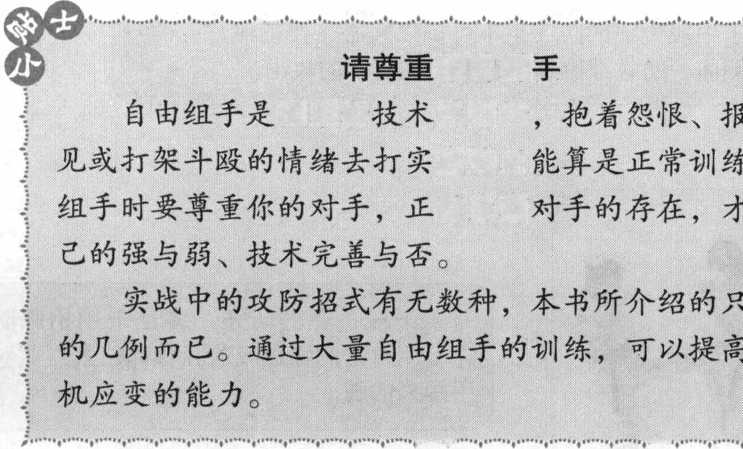 小贴士
请尊重 手
自由组手是 技术 ，抱着怨恨、报
见或打架斗殴的情绪去打实 能算是正常训练
组手时要尊重你的对手，正 对手的存在，才
己的强与弱、技术完善与否。
实战中的攻防招式有无数种，本书所介绍的只
的几例而已。通过大量自由组手的训练，可以提高
机应变的能力。